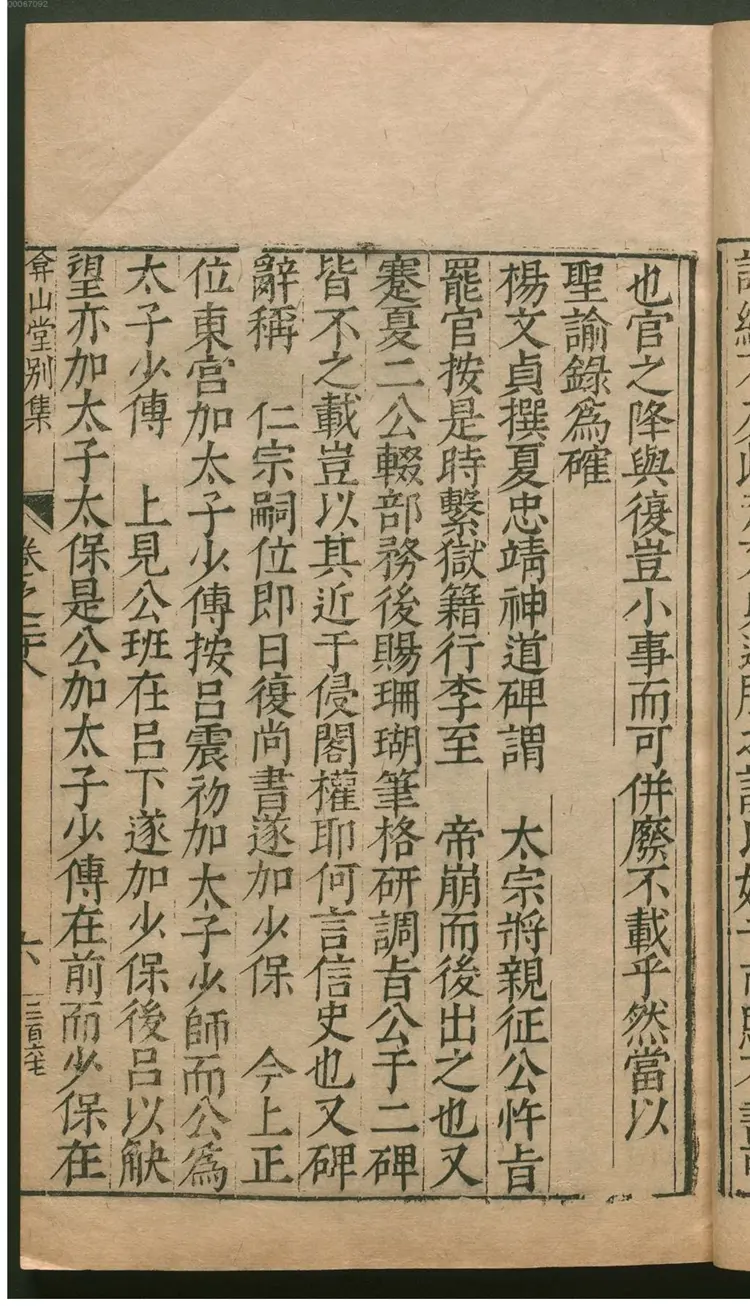 也官之降與復豈小事而可併廢不載乎然當以
聖諭錄爲確
楊文貞撰夏忠靖神道碑謂 太宗將親征公忤旨
罷官按是時繫獄籍行李至 帝崩而後出之也又
蹇夏二公輟部務後賜珊瑚筆格研調旨公于二碑
皆不之載豈以其近于侵閣權耶何言信史也又碑
辭稱 仁宗嗣位即日復尚書遂加少保 今上正
位東宮加太子少傅按呂震初加太子少師而公爲
太子少傅 上見公班在呂下遂加少保後呂以觖
望亦加太子太保是公加太子少傅在前而少保在
弇山堂别集
卷之二十八
六
二百六七
00067092